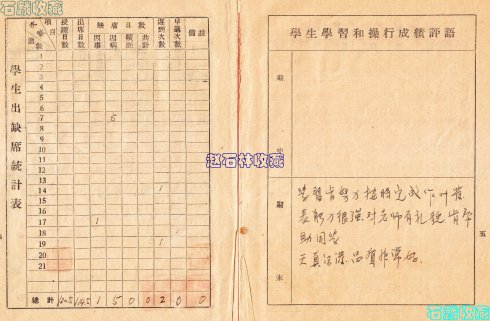 石麟收藏
學生出缺席統計表
項目
週數
授課日數
出席日數
缺席日數
因事
因病
曠課
共計
遲到次數
早退次數
備註
1
2
3
4
5
6
7 5
8
9
10
11
12
13
14 1
15
16
17 1
18
19 1
20
21
總計 1 5 0 0 2 0 0
學生學習和操行成績評語
期中
期末
学習肯努力按時完成作业發
表能力很强对老师有礼貌肯帮
助同学
天真活潑品質非常好.
五
赵石林收藏
石麟收藏